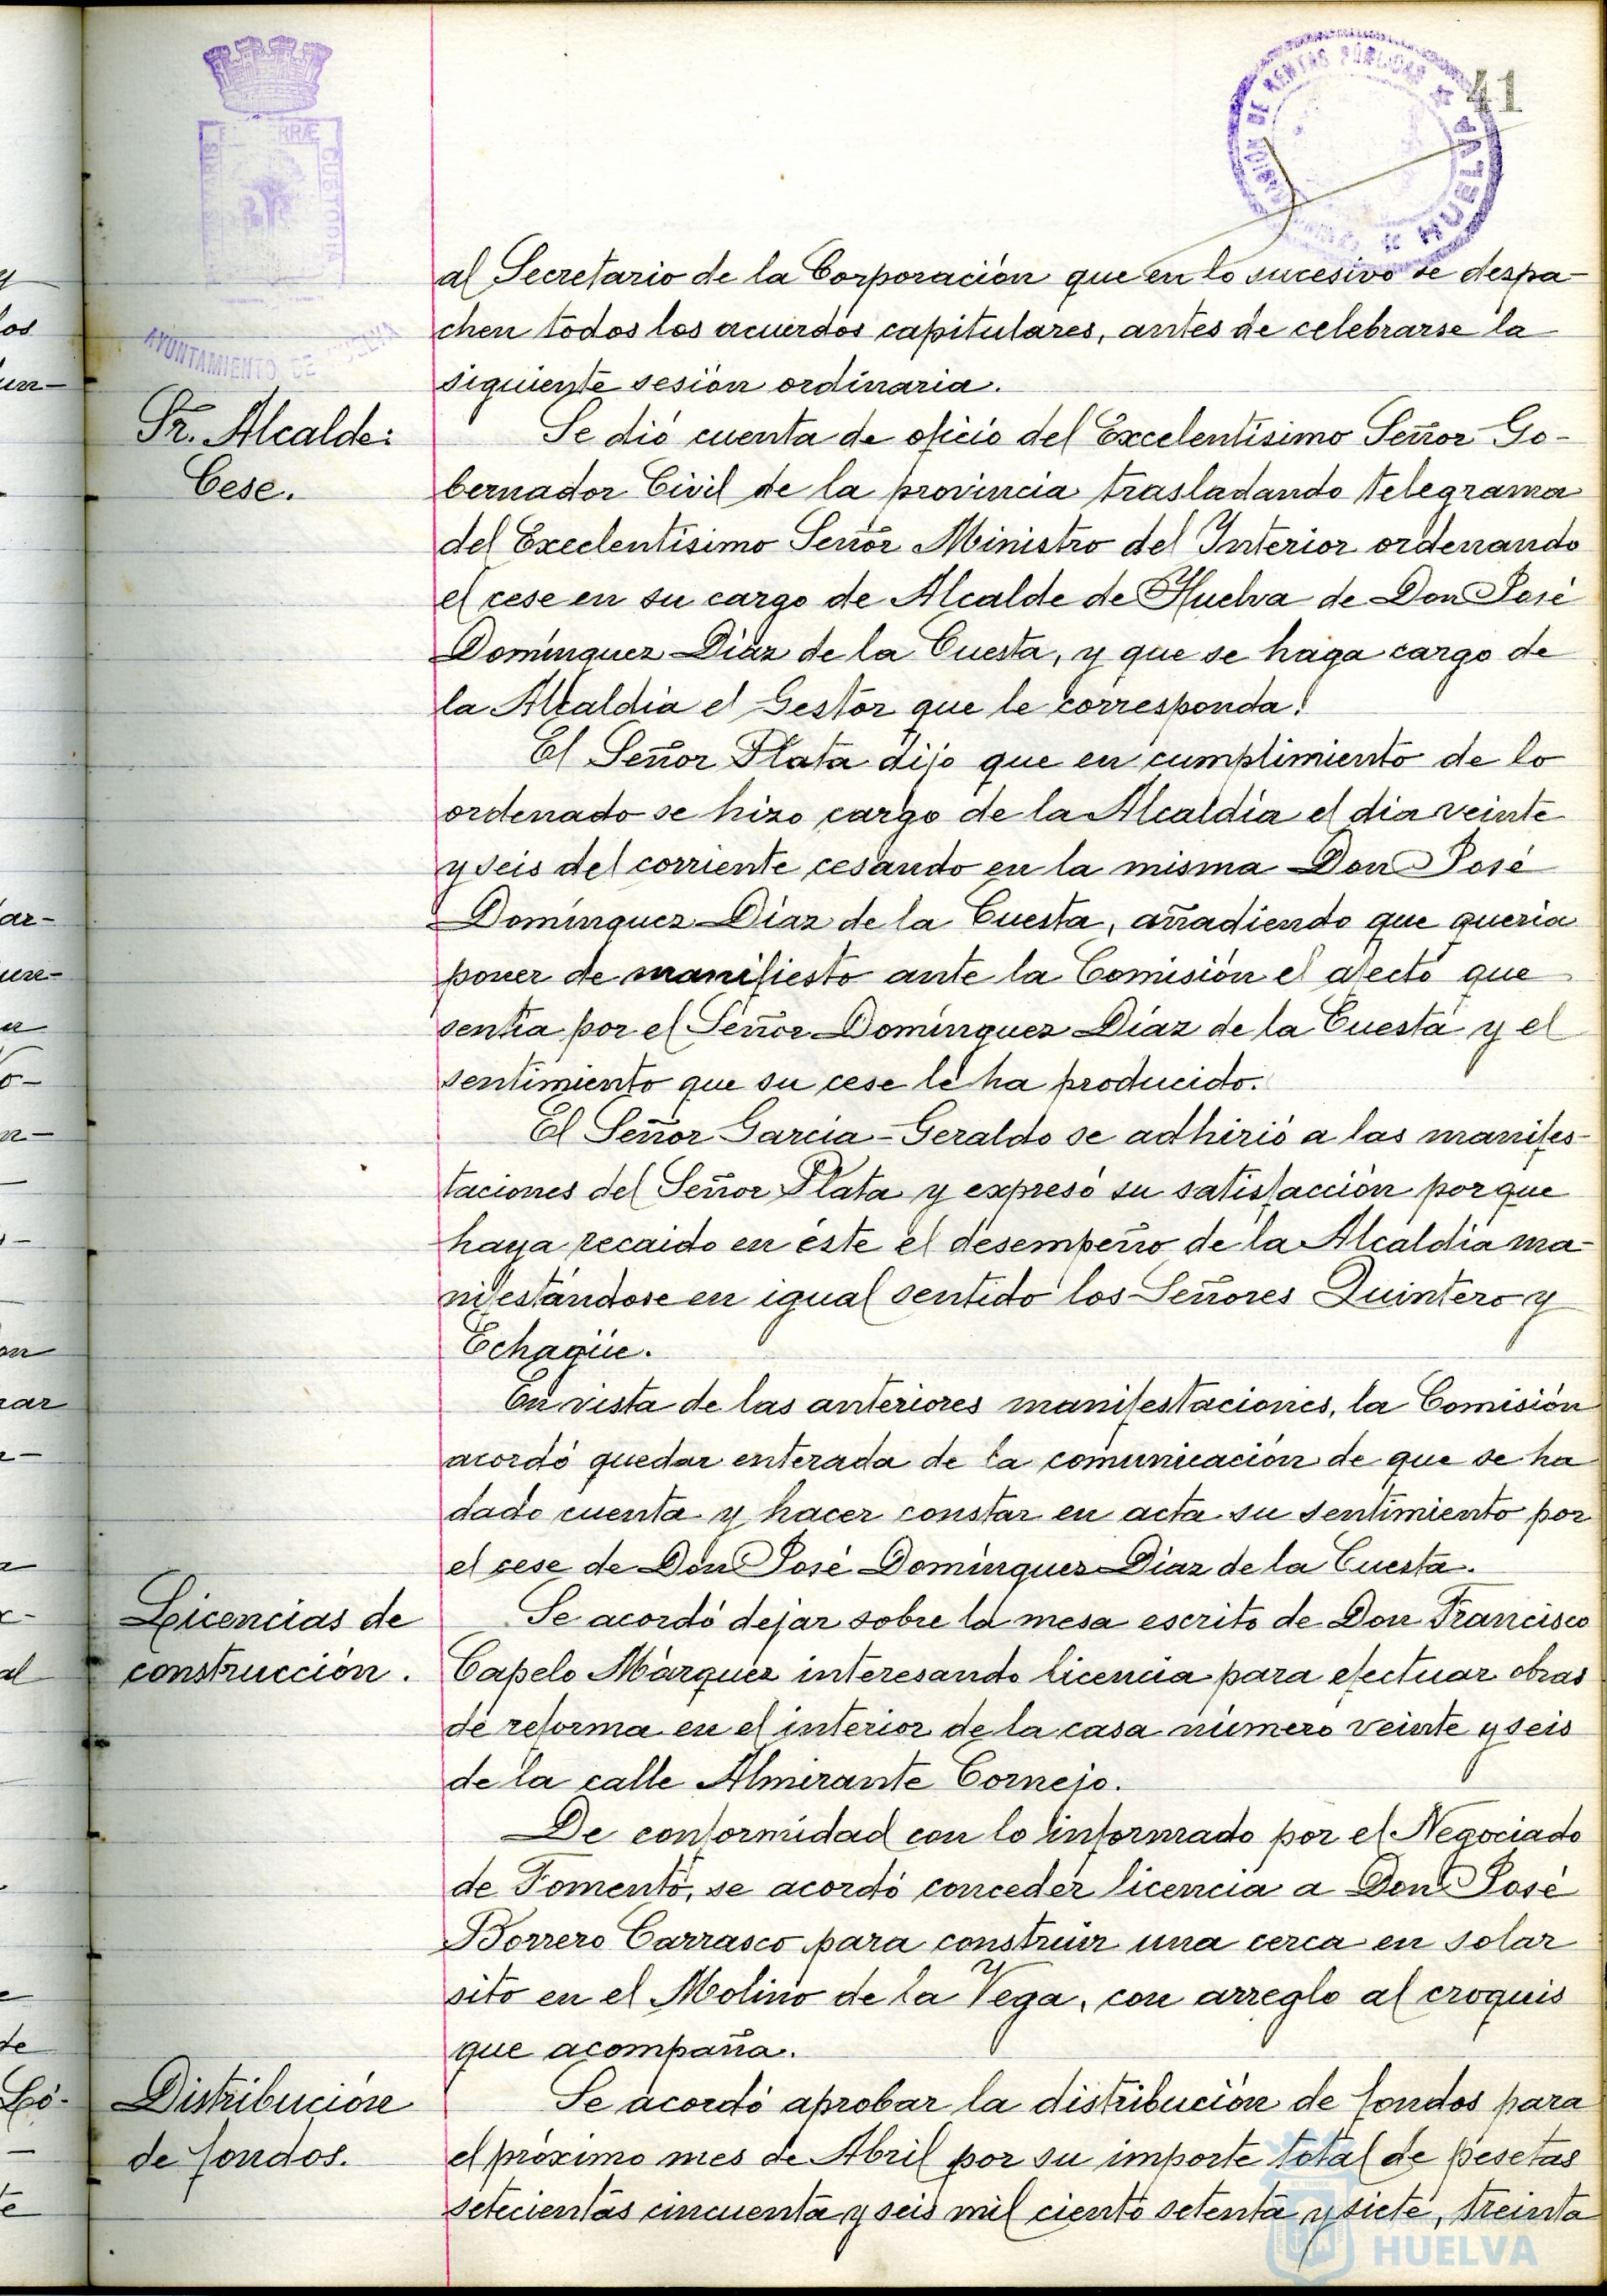 41
COMISIÓN DE RENTAS PÚBLICAS
HUELVA
PORTUS MARIS ET TERRAE CUSTODIA
AYUNTAMIENTO DE HUELVA
al Secretario de la Corporación que en lo sucesivo se despa-
chen todos los acuerdos capitulares, antes de celebrarse la
siguiente sesión ordinaria.
Sr. Alcalde:
Cese.
Se dió cuenta de oficio del Excelentísimo Señor Go-
bernador Civil de la provincia trasladando telegrama
del Execlentísimo Señor Ministro del Interior ordenando
el cese en su cargo de Alcalde de Huelva de Don José
Domínguez Díaz de la Cuesta, y que se haga cargo de
la Alcaldía el Gestor que le corresponda.
El Señor Plata dijo que en cumplimiento de lo
ordenado se hizo cargo de la Alcaldía el día veinte
y seis del corriente cesando en la misma Don José
Domínguez Díaz de la Cuesta, añadiendo que quería
poner de manifiesto ante la Comisión el afecto que
sentía por el Señor Domínguez Díaz de la Cuesta y el
sentimiento que su cese le ha producido.
El Señor García-Geraldo se adhirió a las manifes-
taciones del Señor Plata y expresó su satisfacción porque
haya recaido en éste el desempeño de la Alcaldía ma-
nifestándose en igual sentido los Señores Quintero y
Echagüe.
En vista de las anteriores manifestaciones, la Comisión
acordó quedar enterada de la comunicación de que se ha
dado cuenta y hacer constar en acta su sentimiento por
el cese de Don José Domínguez Díaz de la Cuesta.
Licencias de
construcción.
Se acordó dejar sobre la mesa escrito de Don Francisco
Capelo Márquez interesando licencia para efectuar obras
de reforma en el interior de la casa número veinte y seis
de la calle Almirante Cornejo.
De conformidad con lo informado por el Negociado
de Fomento, se acordó conceder licencia a Don José
Borrero Carrasco para construir una cerca en solar
sito en el Molino de la Vega, con arreglo al croquis
que acompaña.
Distribución
de fondos.
Se acordó aprobar la distribución de fondos para
el próximo mes de Abril por su importe total de pesetas
setecientas cincuenta y seis mil ciento setenta y siete, treinta
HUELVA